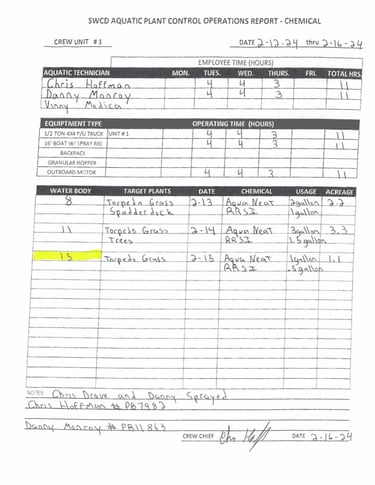 SWCD AQUATIC PLANT CONTROL OPERATIONS REPORT - CHEMICAL
CREW UNIT #1 DATE 2-12-24 thru 2-16-24
EMPLOYEE TIME (HOURS)
AQUATIC TECHNICIAN MON. TUES. WED. THURS. FRI. TOTAL HRS.
Chris Hoffman 4 4 3 11
Danny Manroy 4 4 3 11
Vinny Modica
EQUIPMENT TYPE OPERATING TIME (HOURS)
1/2 TON 4X4 P/U TRUCK UNIT #1 4 4 3 11
16' BOAT W/ SPRAY RIG 4 4 3 11
BACKPACK
GRANULAR HOPPER
OUTBOARD MOTOR 4 4 3 11
WATER BODY TARGET PLANTS DATE CHEMICAL USAGE ACREAGE
8 Torpedo Grass 2-13 Aqua Neat 2gallon 2.2
Spadderdock RRSI 1gallon
11 Torpedo Grass 2-14 Aqua Neat 3gallon 3.3
Trees RRSI 1.5gallon
15 Torpedo Grass 2-15 Aqua Neat 1gallon 1.1
RRSI .5gallon
NOTES: Chris Drove and Danny Sprayed
Chris Hoffman # PB7982
Danny Manroy # PB11863
CREW CHIEF DATE 2-16-24